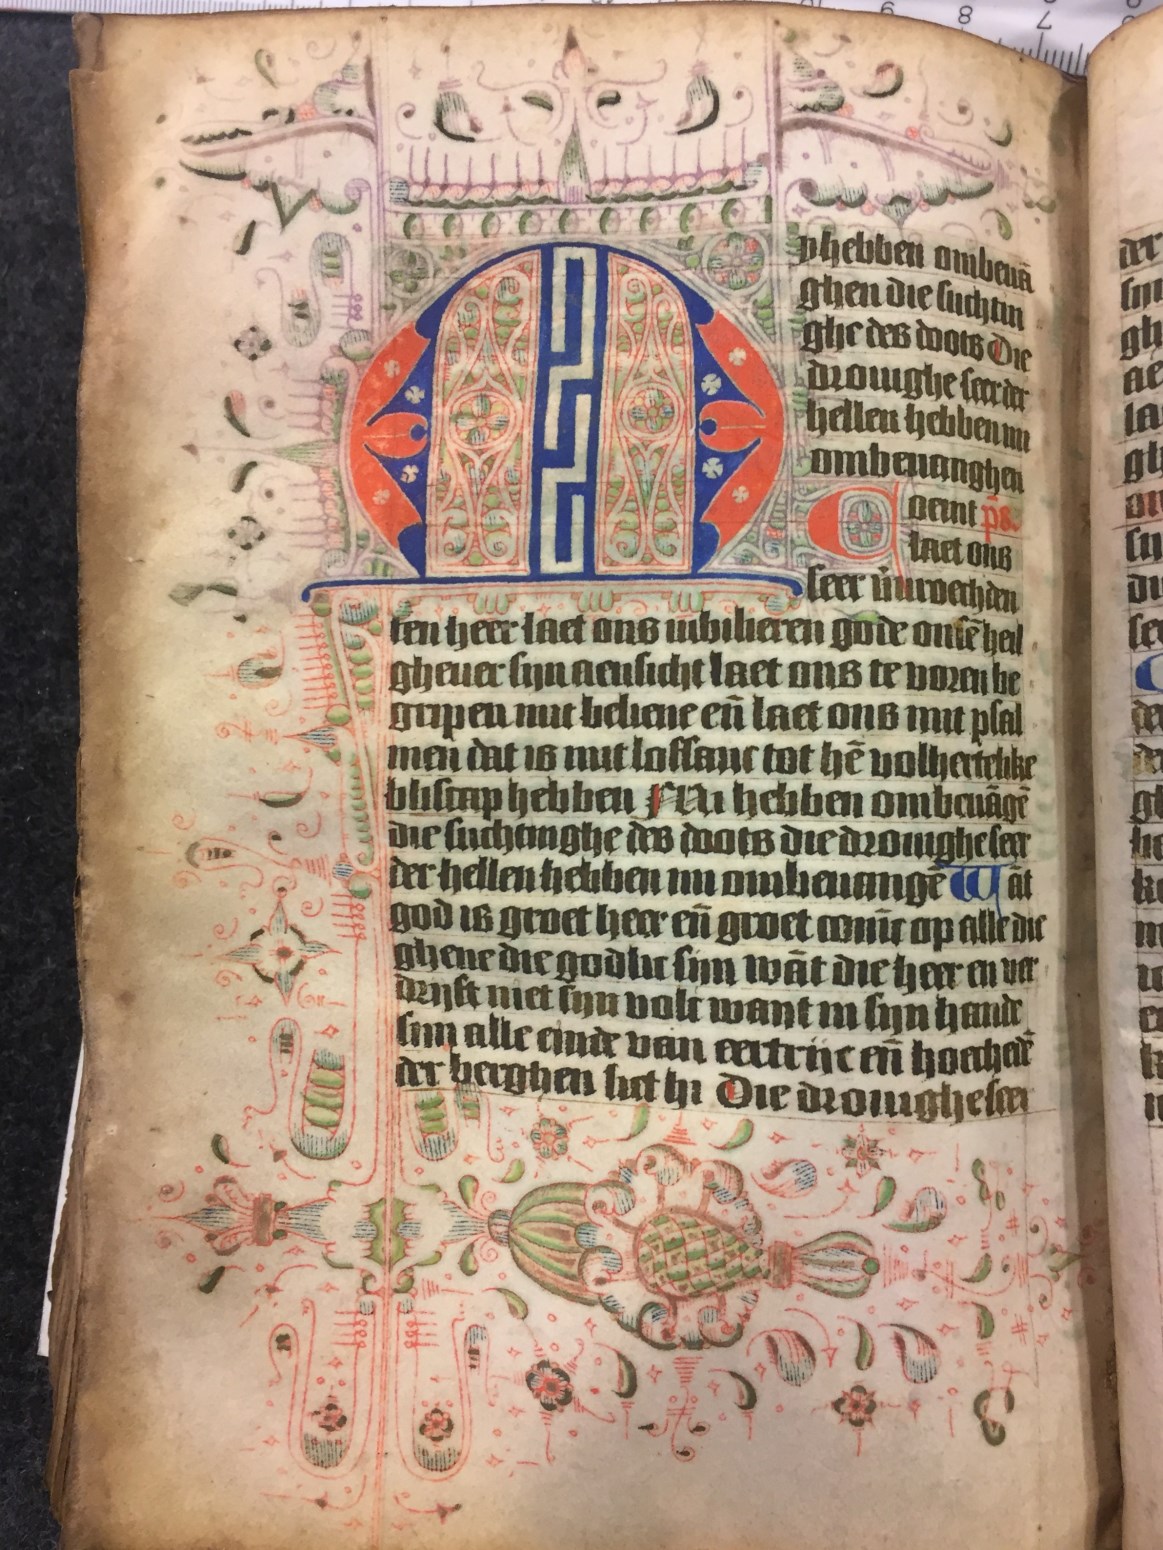 M
y hebben ombeuā
ghen die suchtin
ghe des doots Die
drouighe seer der
hellen hebben mi
ombeuanghen
Coemt ps.
laet ons
seer ū vroechden
ten heer laet ons iubilieren gode onsē heil
gheuer sijn aensicht laet ons te voren be
gripen mit beliene eñ laet ons mit psal
men dat is mit loffanc tot hē volhertelike
bliscap hebben Mi hebben ombeuāgē
die suchtinghe des doots die drouighe seer
der hellen hebben mi ombeuangē Wāt
god is groet heer eñ groet coninc op alle die
ghene die godlic sijn wāt die heer en ver
drijft niet sijn volc want in sijn hande
sijn alle einde van eertrijc eñ hoechedē
der berghen siet hi Die drouighe seer
9 8 7